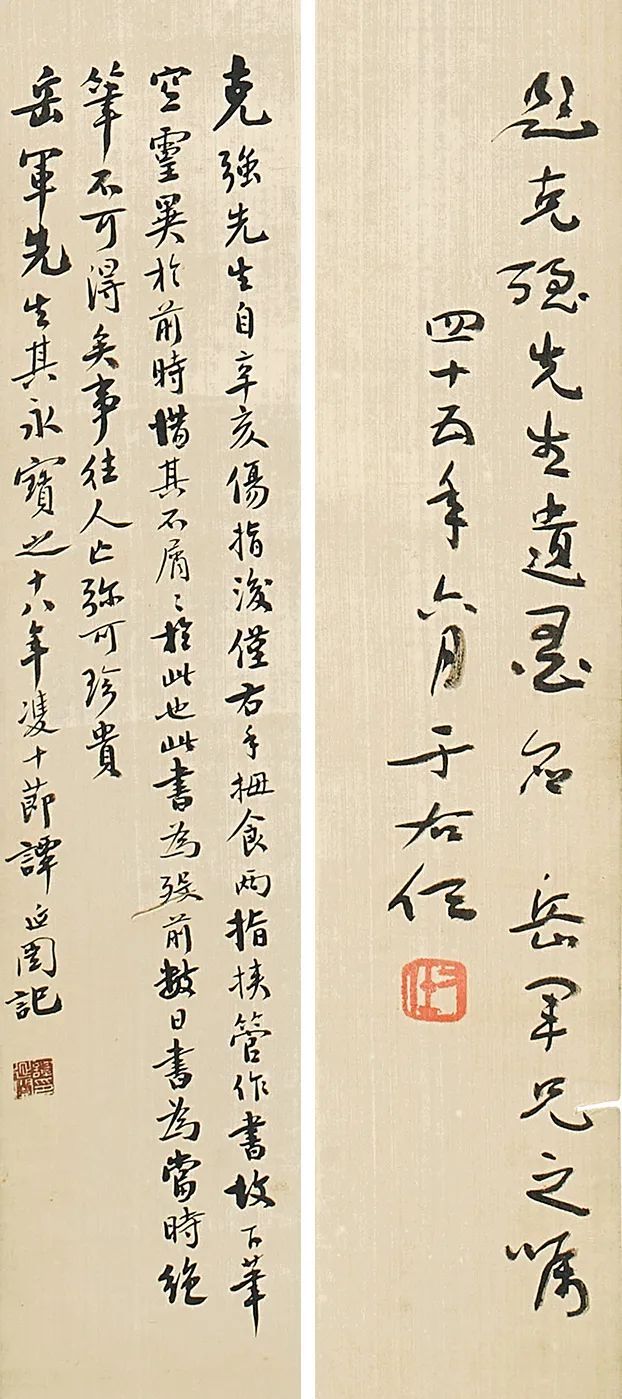 題克强先生遺墨 岳軍兄之嘱
四十五年六月于右任
右任
克強先生自辛亥傷指後僅右手拇食兩指挾管作書故下筆
空靈異於前時惜其不屑〻於此也此書為歿前數日書為當時絕
筆不可得矣事往人亡弥可珍貴
岳軍先生其永寶之十八年雙十節譚延闓記